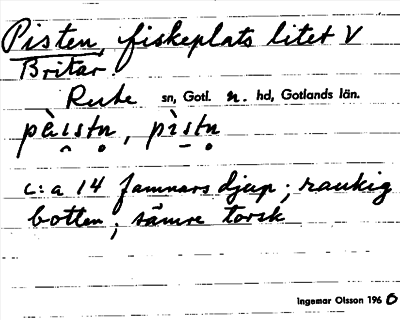 Pisten, fiskeplats litet V
Britar.
Rute sn, Gotl. n. hd, Gotlands län.
pèi̯stn̥, pìstn̥
c:a 14 famnars djup; raukig
botten; sämre torsk
Ingemar Olsson 1960